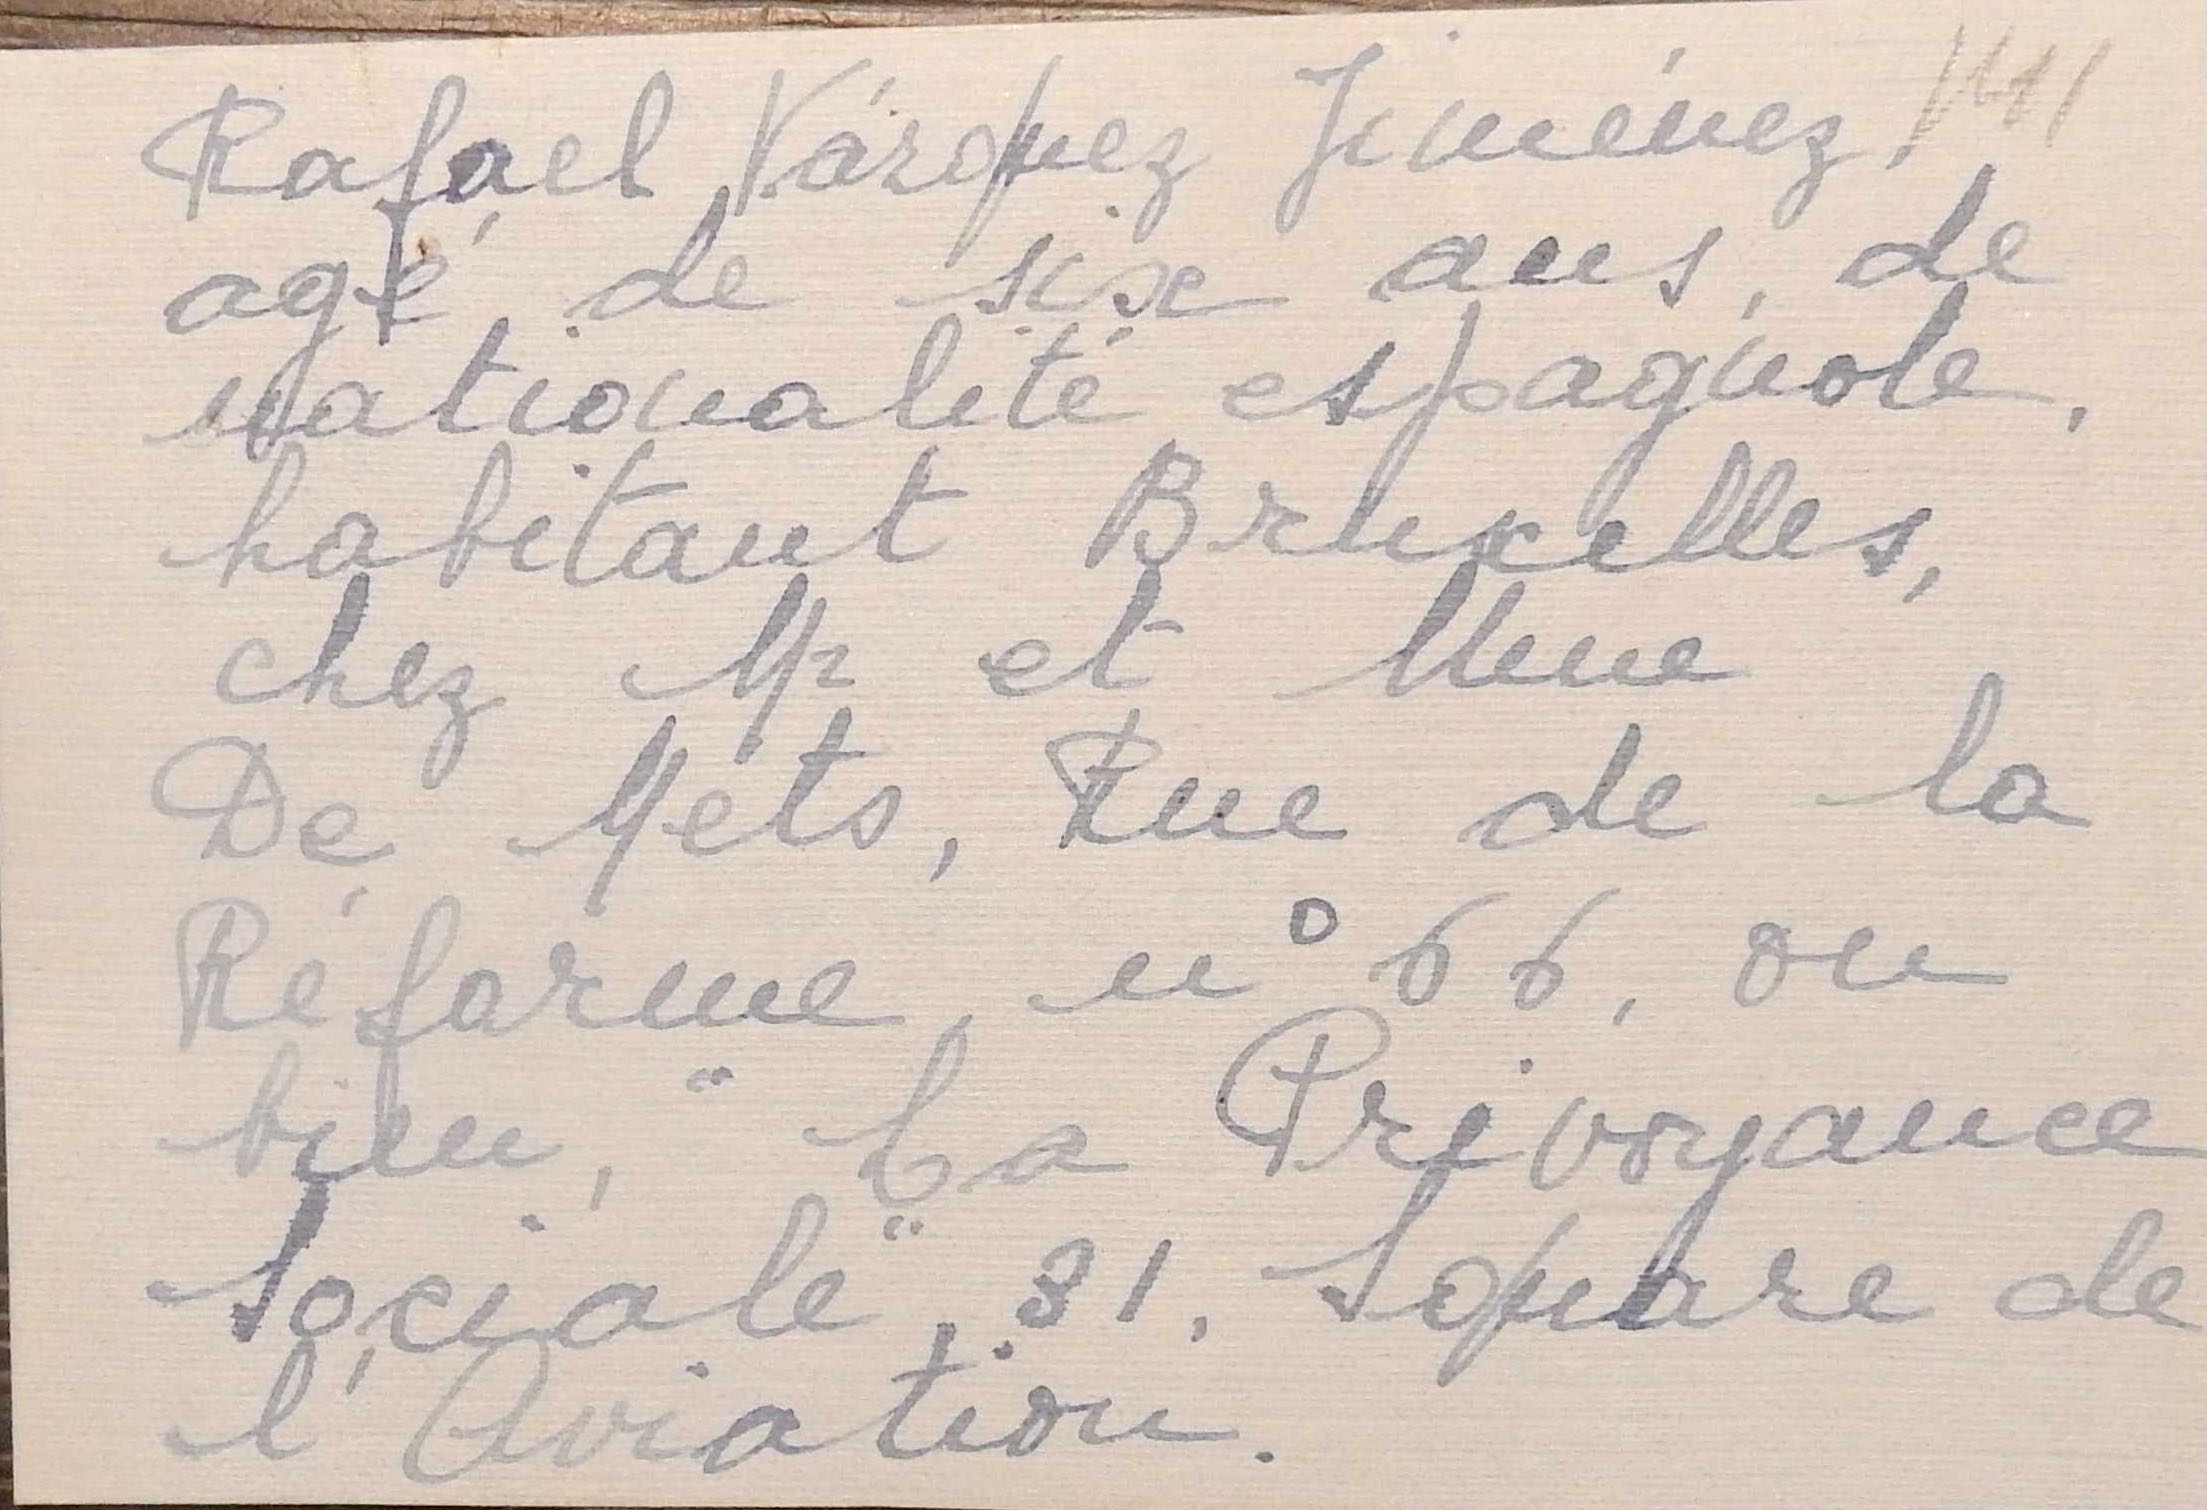 Rafael Vázquez Jiménez,
agé de six ans, de
nationalité espagnole,
habitant Bruxelles,
chez Mr et Mme
De Mets, Rue de la
Réforme, nº 66, ou
bien, "La Prévoyance
Sociale", 31, Square de
l'Aviation.